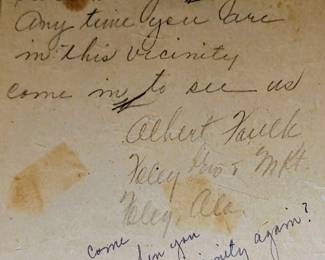 Any time you are
in this vicinity
come in to see us
Albert Faulk
Foley Gro & Mkt.
Foley, Ala.
come
in you
vicinity again?